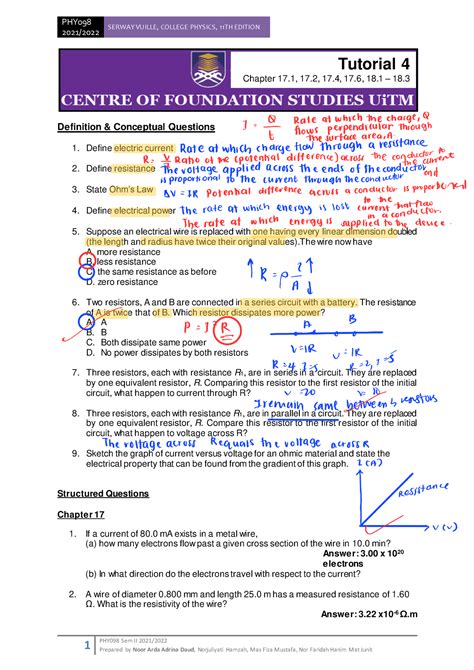 PHY098
2021/2022
SERWAY VUILLE, COLLEGE PHYSICS, 11TH EDITION
Tutorial 4
Chapter 17.1, 17.2, 17.4, 17.6, 18.1 – 18.3
CENTRE OF FOUNDATION STUDIES UiTM
I = Q/t
Rate at which the charge, Q
flows perpendicular through
the surface area, A
Definition & Conceptual Questions
1. Define electric current Rate at which charge flow through a resistance
R = V/I Ratio of the (potential difference) across the conductor to the current
2. Define resistance the voltage applied across the ends of the conductor
is proportional to the current through the conductor and
3. State Ohm's Law ΔV = IR Potential difference across a conductor is proportional
to the current that flow
in a conductor.
4. Define electrical power The rate at which energy is lost
The rate at which energy is supplied to the device.
5. Suppose an electrical wire is replaced with one having every linear dimension doubled
(the length and radius have twice their original values).The wire now have
A. more resistance
B. less resistance
C. the same resistance as before
D. zero resistance
R = ρ l/A
6. Two resistors, A and B are connected in a series circuit with a battery. The resistance
of A is twice that of B. Which resistor dissipates more power?
A. A
B. B
C. Both dissipate same power
D. No power dissipates by both resistors
P = I² R
A B
V = IR V = IR
R = 4 I = 5 R = 2, I = 5
7. Three resistors, each with resistance R₁, are in series in a circuit. They are replaced
by one equivalent resistor, R. Comparing this resistor to the first resistor of the initial
circuit, what happen to current through R?
V = 20 V = 10
I remain same between resistors
8. Three resistors, each with resistance R₁, are in parallel in a circuit. They are replaced
by one equivalent resistor, R. Compare this resistor to the first resistor of the initial
circuit, what happen to voltage across R?
The voltage across R equals the voltage across R
9. Sketch the graph of current versus voltage for an ohmic material and state the
electrical property that can be found from the gradient of this graph.
I (A)
resistance
V (V)
Structured Questions
Chapter 17
1. If a current of 80.0 mA exists in a metal wire,
(a) how many electrons flow past a given cross section of the wire in 10.0 min?
Answer: 3.00 x 10²⁰
electrons
(b) In what direction do the electrons travel with respect to the current?
2. A wire of diameter 0.800 mm and length 25.0 m has a measured resistance of 1.60
Ω. What is the resistivity of the wire?
Answer: 3.22 x10⁻⁸ Ω.m
1
PHY098 Sem II 2021/2022
Prepared by Noor Arda Adrina Daud, Norjuliyati Hamzah, Mas Fiza Mustafa, Nor Faridah Hanim Mat Junit